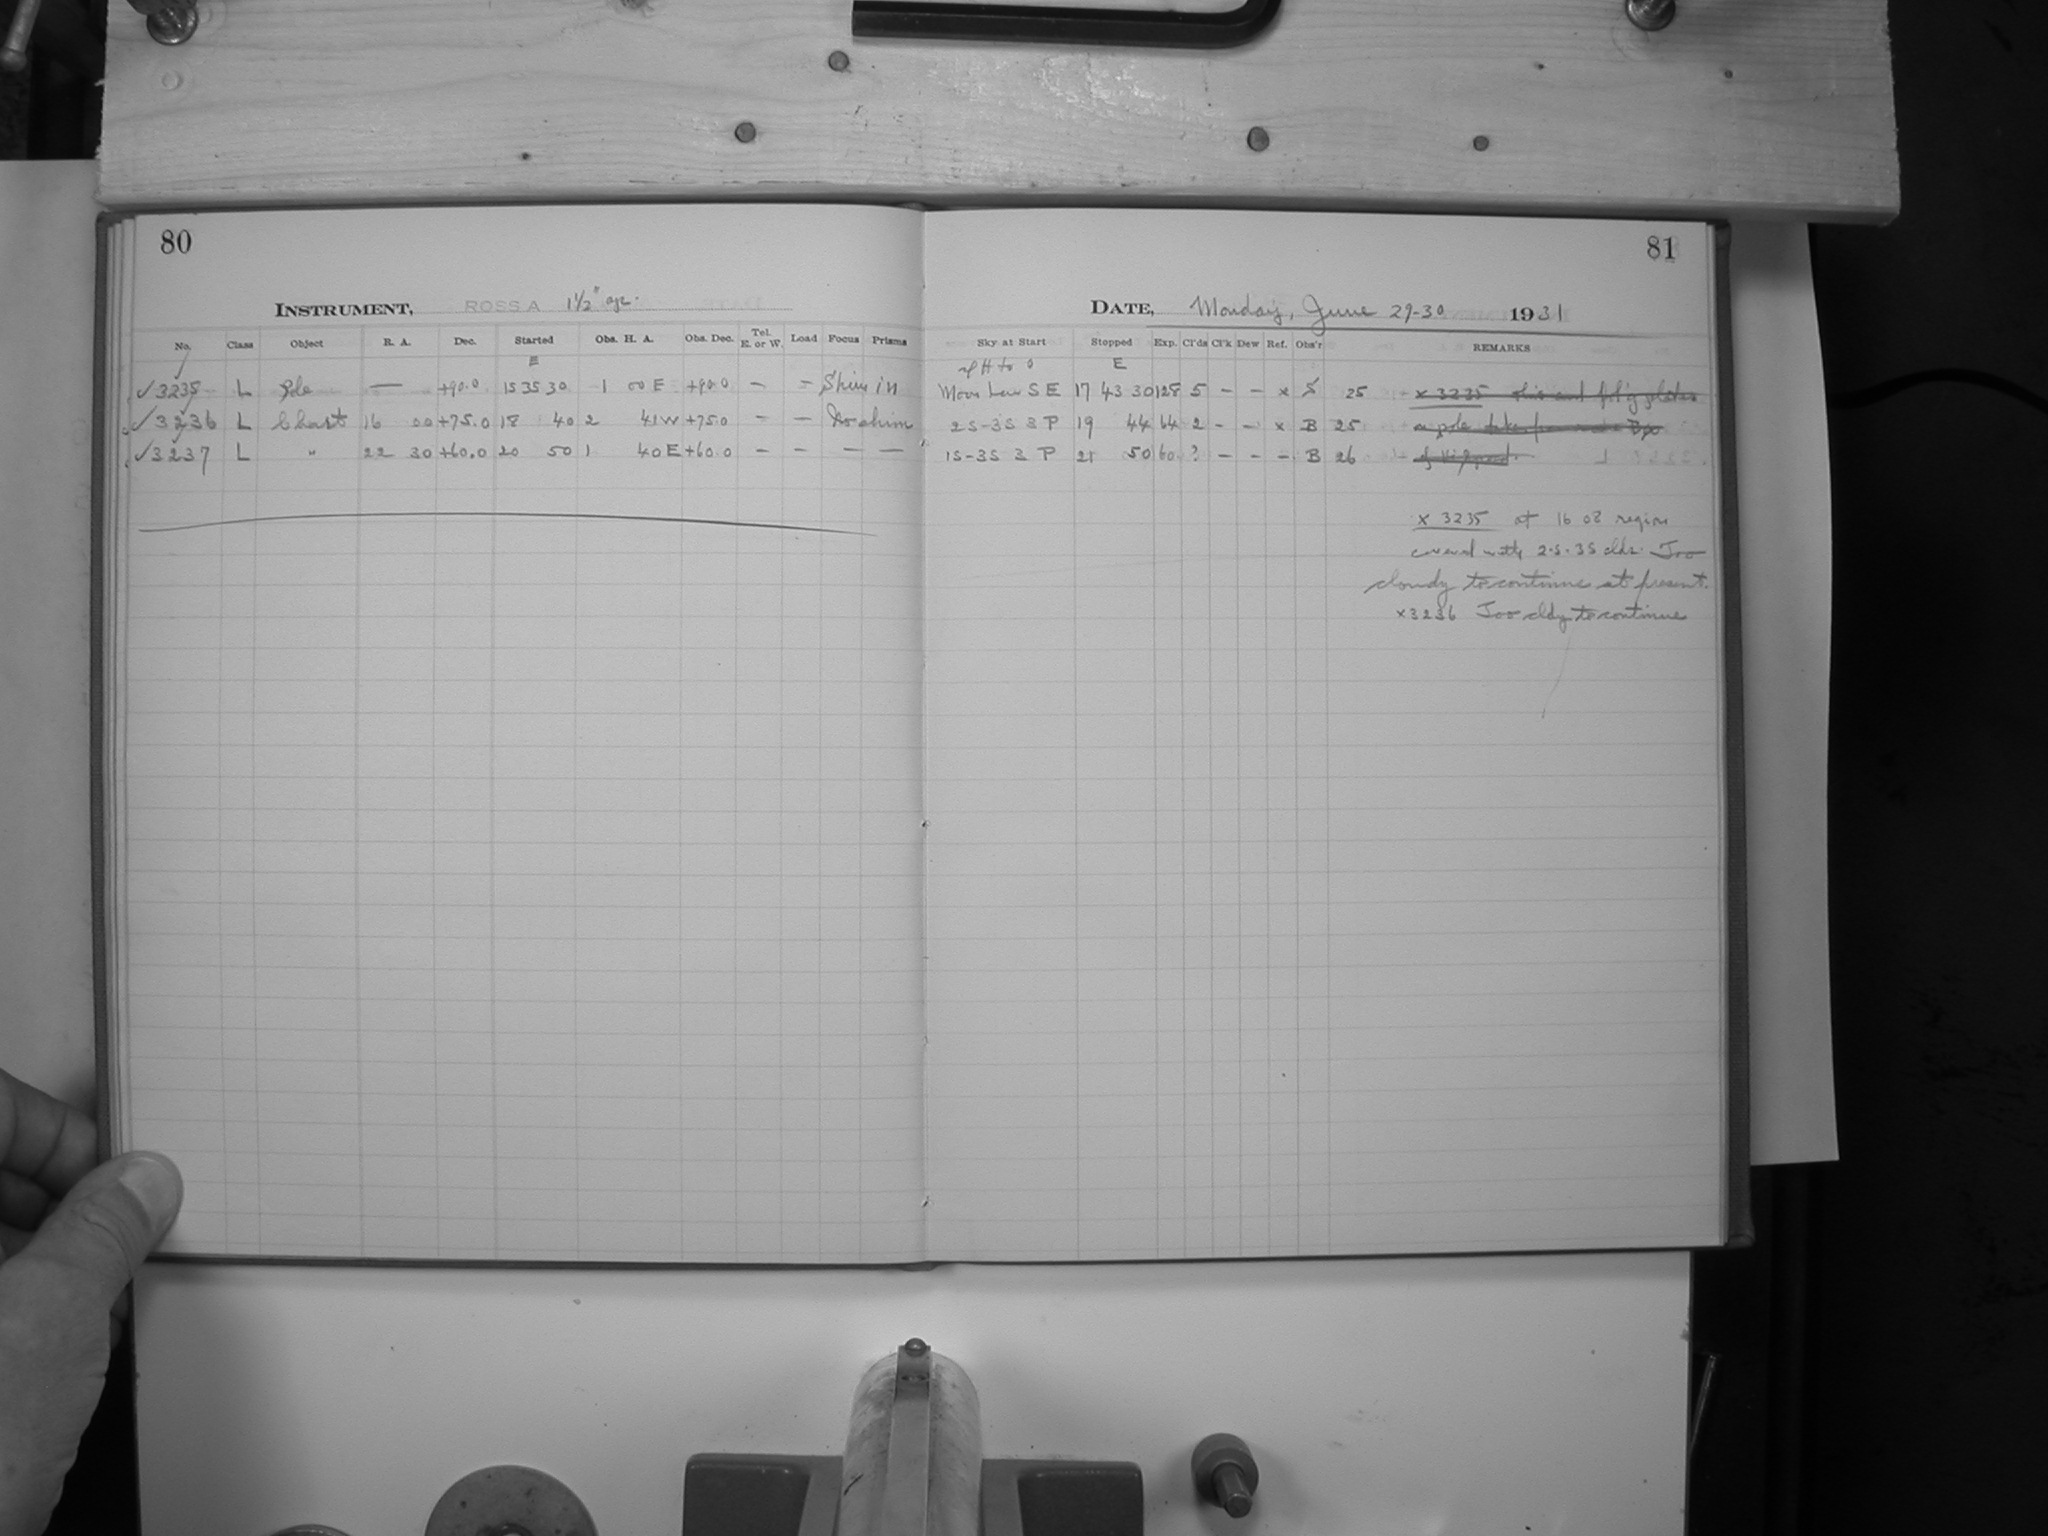 80
INSTRUMENT, ROSS A 1½" ap.
No. Class Object R. A. Dec. Started Obs. H. A. Obs. Dec. Tel. E. or W. Load Focus Prisms
E
✓3235 L Pole — +90.0 15 35 30 1 00 E +90.0 — — Shim in
✓3236 L Chart 16 00 +75.0 18 40 2 41 W +75.0 — — No shim
✓3237 L " 22 30 +60.0 20 50 1 40 E +60.0 — — — —
81
DATE, Monday, June 29-30 1931
Sky at Start Stopped Exp. Cl'ds Cl'k Dew Ref. Obs'r REMARKS
E
Moon Low S E 17 43 30 128 5 — — x S 25 x 3235 this and
2S-3S 3 P 19 44 64 2 — — x B 25 pole taken
1S-3S 3 P 21 50 60 ? — — — B 26
x 3235 at 16 08 region
covered with 2S-3S clds. Too
cloudy to continue at present.
x3236 Too cldy to continue